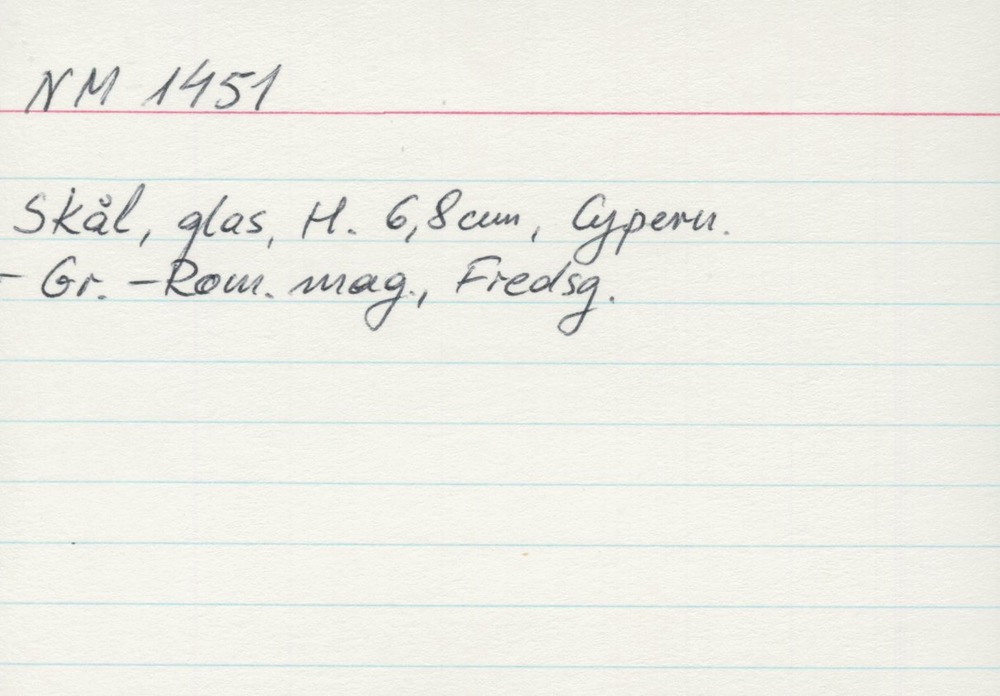 NM 1451
Skål, glas, H. 6,8 cm, Cypern.
- Gr. - Rom. mag., Fredsg.